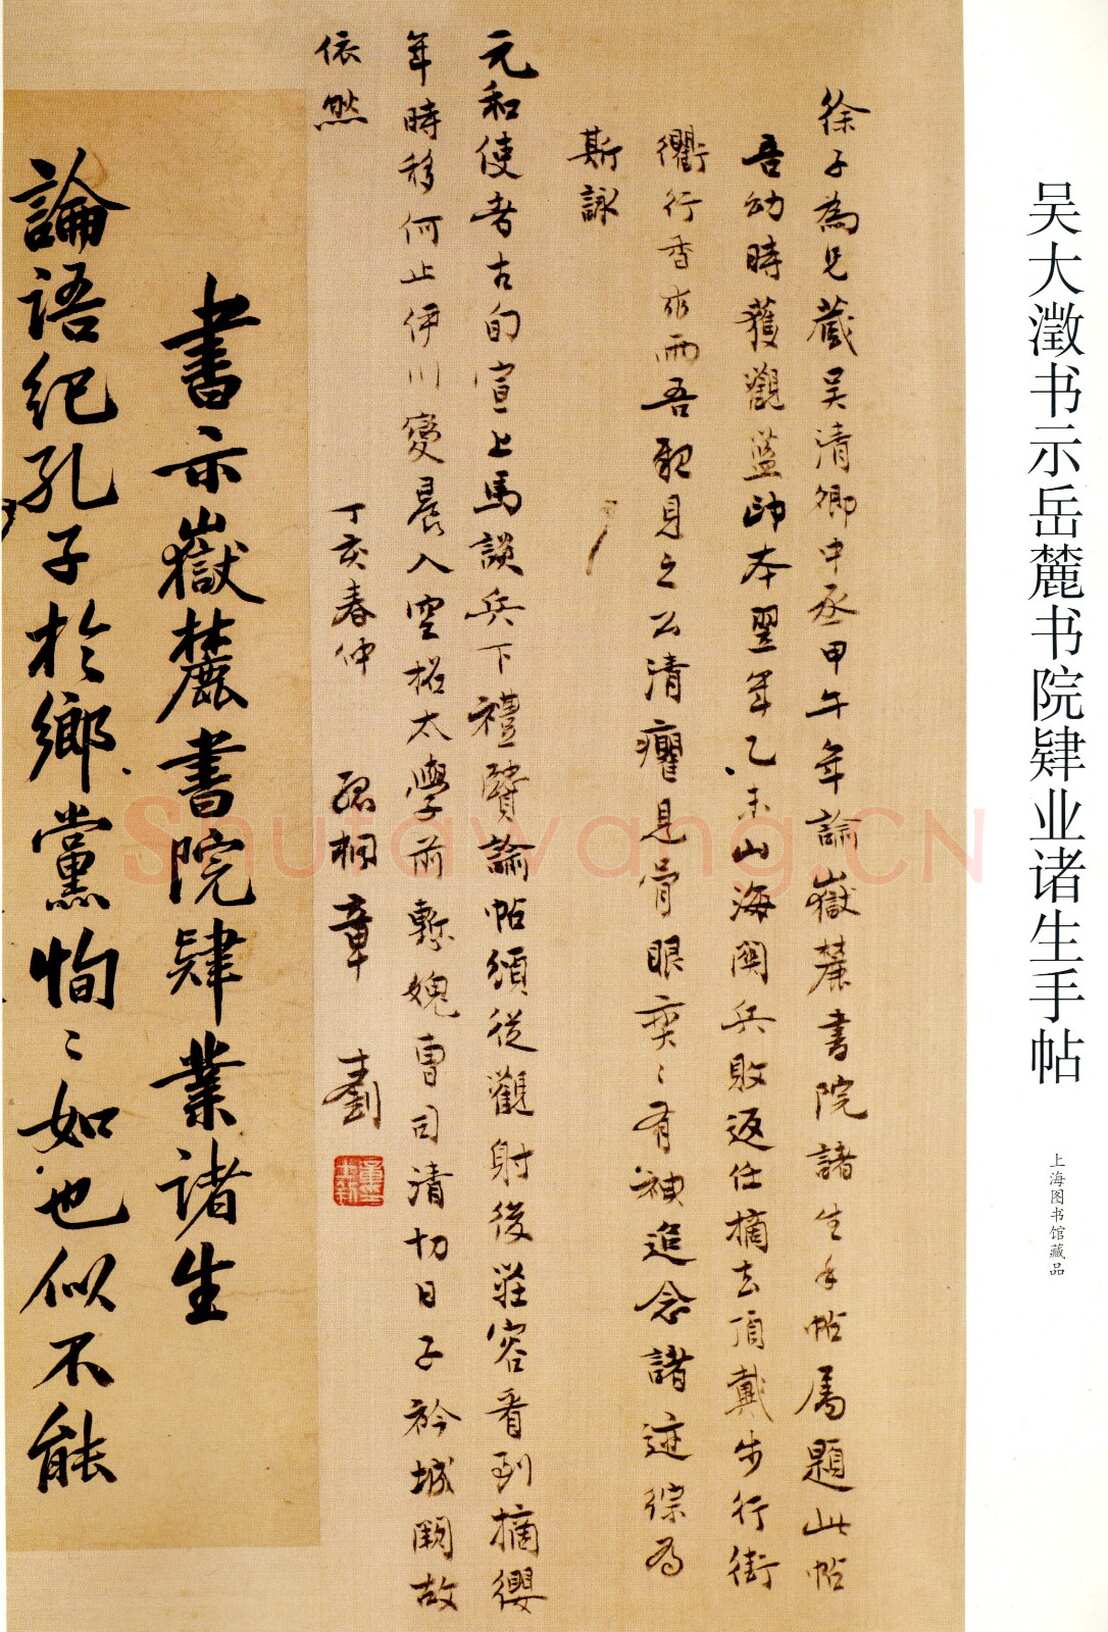 吴大澂书示岳麓书院肄业诸生手帖
上海图书馆藏品
徐子為兄藏吴清卿中丞甲午年論嶽麓書院諸生手帖属題此帖
吾幼時獲觀藍印本翌年乙未山海關兵敗返任摘去頂戴步行街
衢行香求雨吾親見之公清癯見骨眼奕〻有神追念諸迹综为
斯詠
元和使者古旬宣上馬談兵下禮賢論帖頌從觀射後莊容看到摘纓
年時移何止伊川變晨入空招太學前慙媿曹司清切日子衿城闕故
依然
丁亥春仲 孤桐章士釗
書示嶽麓書院肄業諸生
論語紀孔子於鄉黨恂〻如也似不能
Shufawang.CN